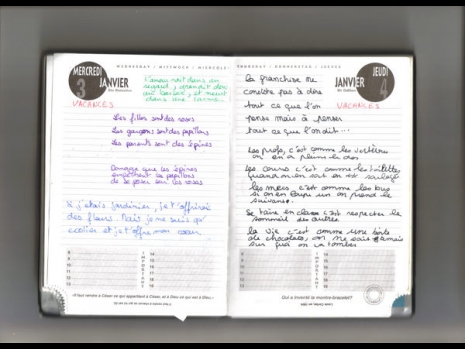 WEDNESDAY / MITTWOCH / MIERCOLES
MERCREDI
3
JANVIER
L'amour naît dans un
regard, grandit dans
un baiser, et meurt
dans une larme.
VACANCES
Les filles sont des roses
Les garçons sont des papillons
Les parents sont des épines
Dommage que les épines
empêchent les papillons
de se poser sur les roses
Si j'étais jardinier, je t'offrirais
des fleurs. Mais je ne suis qu'
écolier et je t'offre mon cœur
8
9
10
11
12
IMPORTANT
14
15
16
17
18
Il faut rendre à César ce qui appartient à César, et à Dieu ce qui est à Dieu
THURSDAY / DONNERSTAG / JUEVES
JEUDI
4
JANVIER
VACANCES
La franchise ne
consiste pas à dire
tout ce que l'on
pense mais à penser
tout ce que l'on dit...
Les profs, c'est comme les vertèbres
on en a plein le dos
Les cours c'est comme les toilettes,
quand on en sort on est soulagé
les mecs c'est comme les bus
si on en loupe un on prend le
suivant.
Se taire en classe c'est respecter le
sommeil des autres
la vie c'est comme une boîte
de chocolats, on ne sait jamais
sur quoi on va tomber
8
9
10
11
12
IMPORTANT
14
15
16
17
18
Qui a inventé la montre-bracelet?